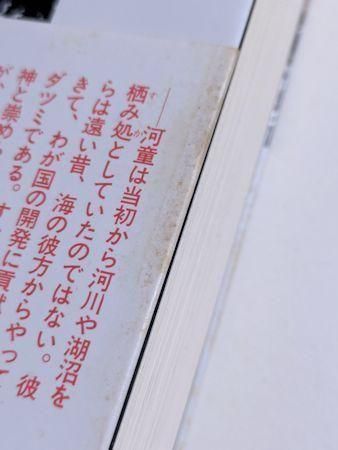 ――河童は当初から河川や湖沼を
栖み処としていたのではない。彼
らは遠い昔、海の彼方からやって
きて、わが国の開発に貢献
ダツミである。す
神と崇め
が、